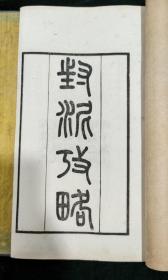 封泥攷略